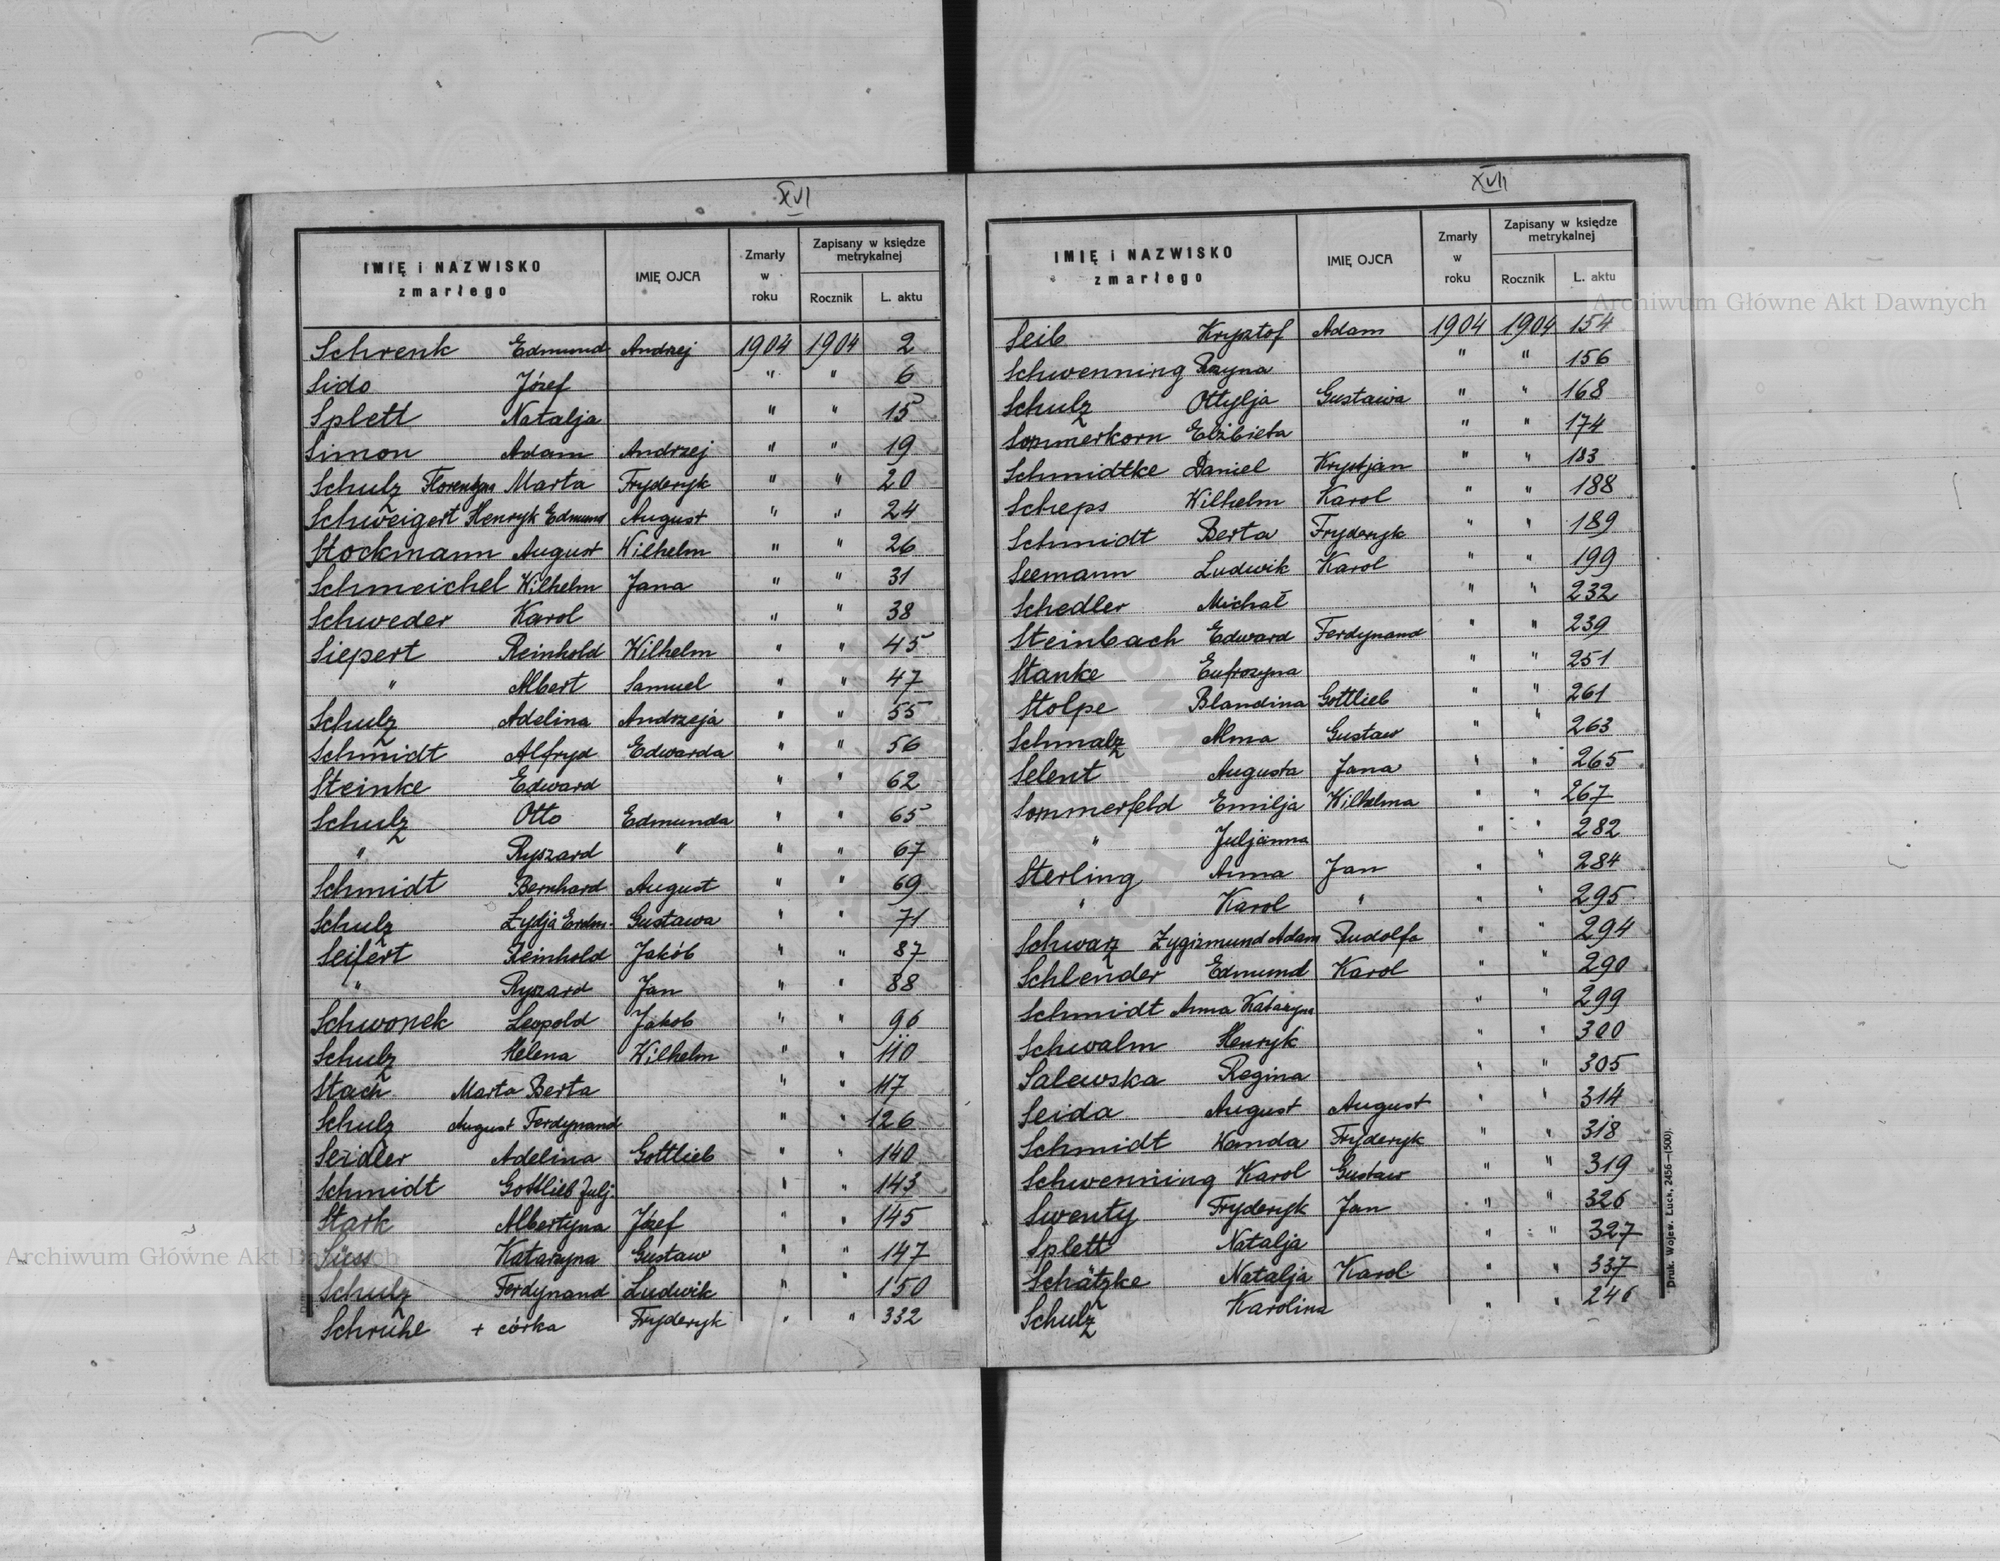 XVI
IMIĘ i NAZWISKO zmarłego IMIĘ OJCA Zmarły w roku Zapisany w księdze metrykalnej Rocznik L. aktu
Schrenk Edmund Andrzej 1904 1904 2
Sido Józef " " 6
Splett Natalja " " 15
Simon Adam Andrzej " " 19
Schulz Marta Fryderyk " " 20
Schweigert Henryk Edmund August " " 24
Stockmann August Wilhelm " " 26
Schmeichel Wilhelm Jana " " 31
Schweder Karol " " 38
Siepert Reinhold Wilhelm " " 45
" Albert Samuel " " 47
Schulz Adelina Andrzeja " " 55
Schmidt Alfryd Edwarda " " 56
Steinke Edward " " 62
Schulz Otto Edmunda " " 65
" Ryszard " " " 67
Schmidt Bernhard August " " 69
Schulz Lydja Erdm. Gustawa " " 71
Seifert Reinhold Jakób " " 87
" Ryszard Jan " " 88
Schwonek Leopold Jakob " " 96
Schulz Helena Wilhelm " " 110
Stach Marta Berta " " 117
Schulz August Ferdynand " " 126
Seidler Adelina Gottlieb " " 140
Schmidt Gottlieb Julj. " " 143
Stark Albertyna Józef " " 145
Katarzyna Gustaw " " 147
Schulz Ferdynand Ludwik " " 150
Schruhe + córka Fryderyk " " 332
XVII
IMIĘ i NAZWISKO zmarłego IMIĘ OJCA Zmarły w roku Zapisany w księdze metrykalnej Rocznik L. aktu
Seib Krysztof Adam 1904 1904 154
Schwenning " " 156
Schulz Ottylja Gustawa " " 168
Sommerkorn Elżbieta " " 174
Schmidtke Daniel Krystjan " " 183
Scheps Wilhelm Karol " " 188
Schmidt Berta Fryderyk " " 189
Seemann Ludwik Karol " " 199
Schedler Michał " " 232
Steinbach Edward Ferdynand " " 239
Stanke Eufrozyna " " 251
Stolpe Blandina Gottlieb " " 261
Schmalz Alma Gustaw " " 263
Selent Augusta Jana " " 265
Sommerfeld Emilja Wilhelma " " 267
" Juljanna " " 282
Sterling Anna Jan " " 284
" Karol " " " 295
Schwarz Zygizmund Adam Rudolfa " " 294
Schlender Edmund Karol " " 290
Schmidt Anna Katarzyna " " 299
Schwalm Henryk " " 300
Salewska Regina " " 305
Seida August August " " 314
Schmidt Wanda Fryderyk " " 318
Schwenning Karol Gustaw " " 319
Swenty Fryderyk Jan " " 326
Splett Natalja " " 327
Schätzke Natalja Karol " " 337
Schulz Karolina " " 246
Druk. Wojew. Łuck, 2456—(500).
Archiwum Główne Akt Dawnych
Archiwum Główne Akt Dawnych